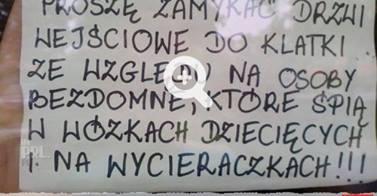 PROSZĘ ZAMYKAĆ DRZWI
WEJŚCIOWE DO KLATKI
ZE WZGLĘDU NA OSOBY
BEZDOMNE, KTÓRE ŚPIĄ
W WÓZKACH DZIECIĘCYCH
I NA WYCIERACZKACH!!!